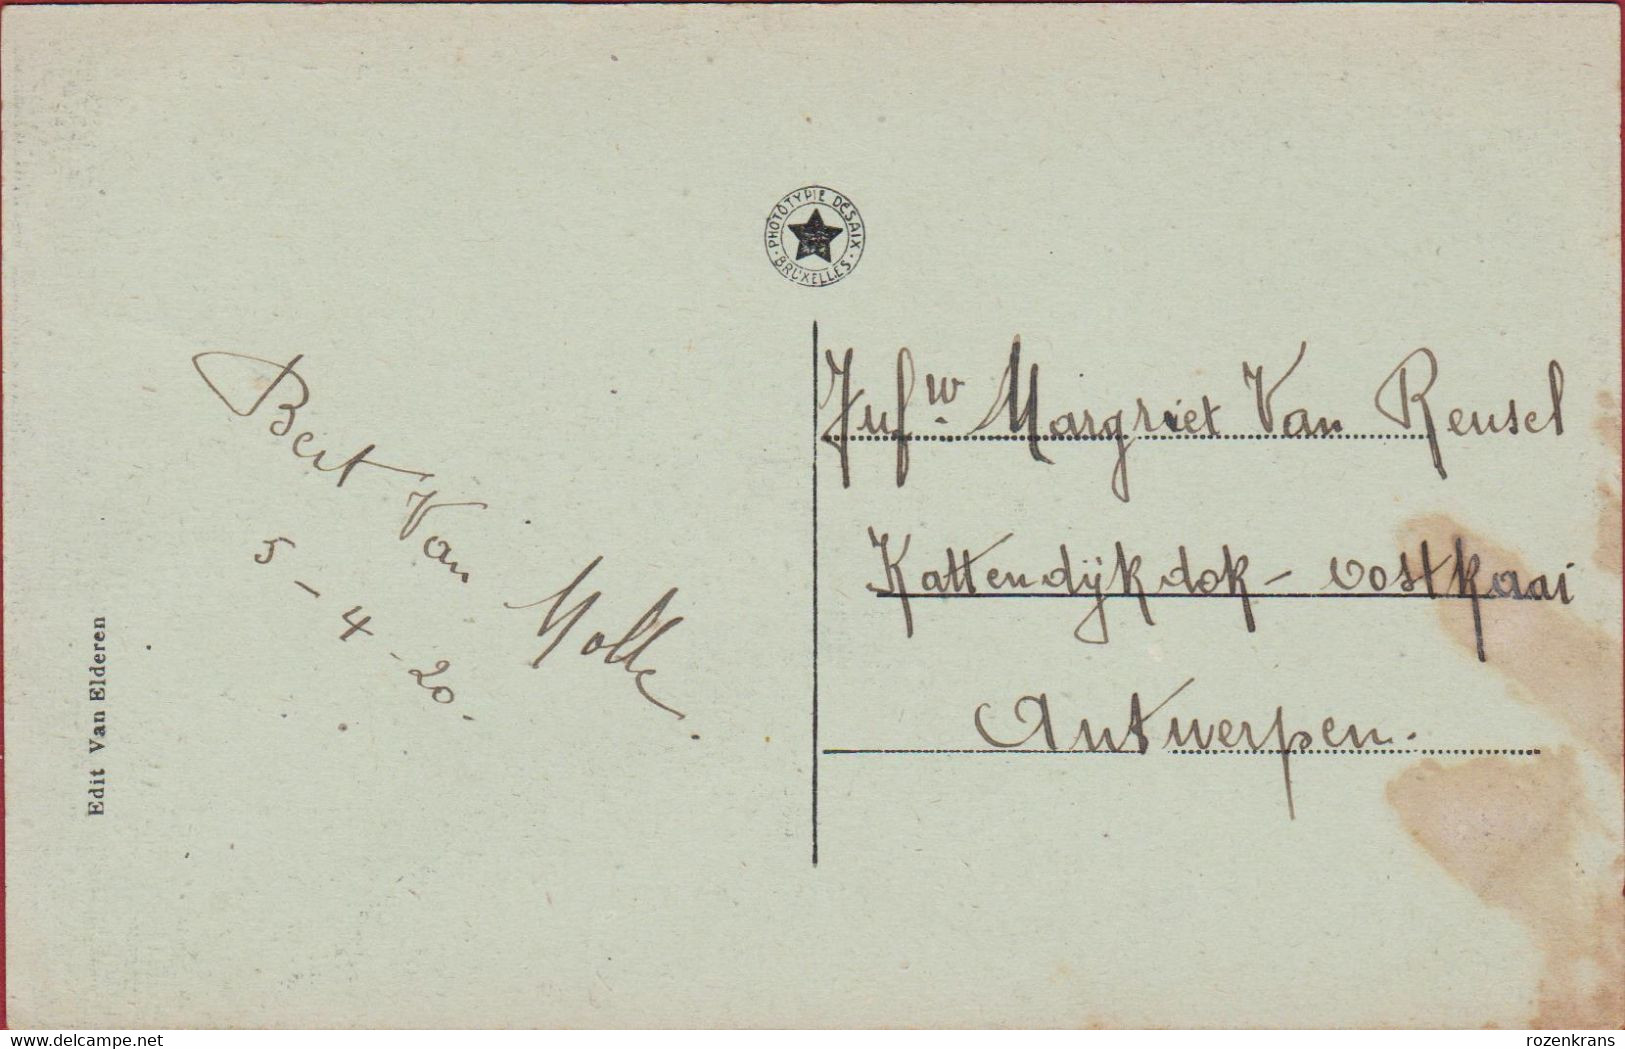 PHOTOTYPIE DESAIX
BRUXELLES
Bert Van Molle.
5-4-20.
Edit Van Elderen
Jufw. Margriet Van Reusel
Kattendijkdok - Oostkaai
Antwerpen.
www.delcampe.net
rozenkrans